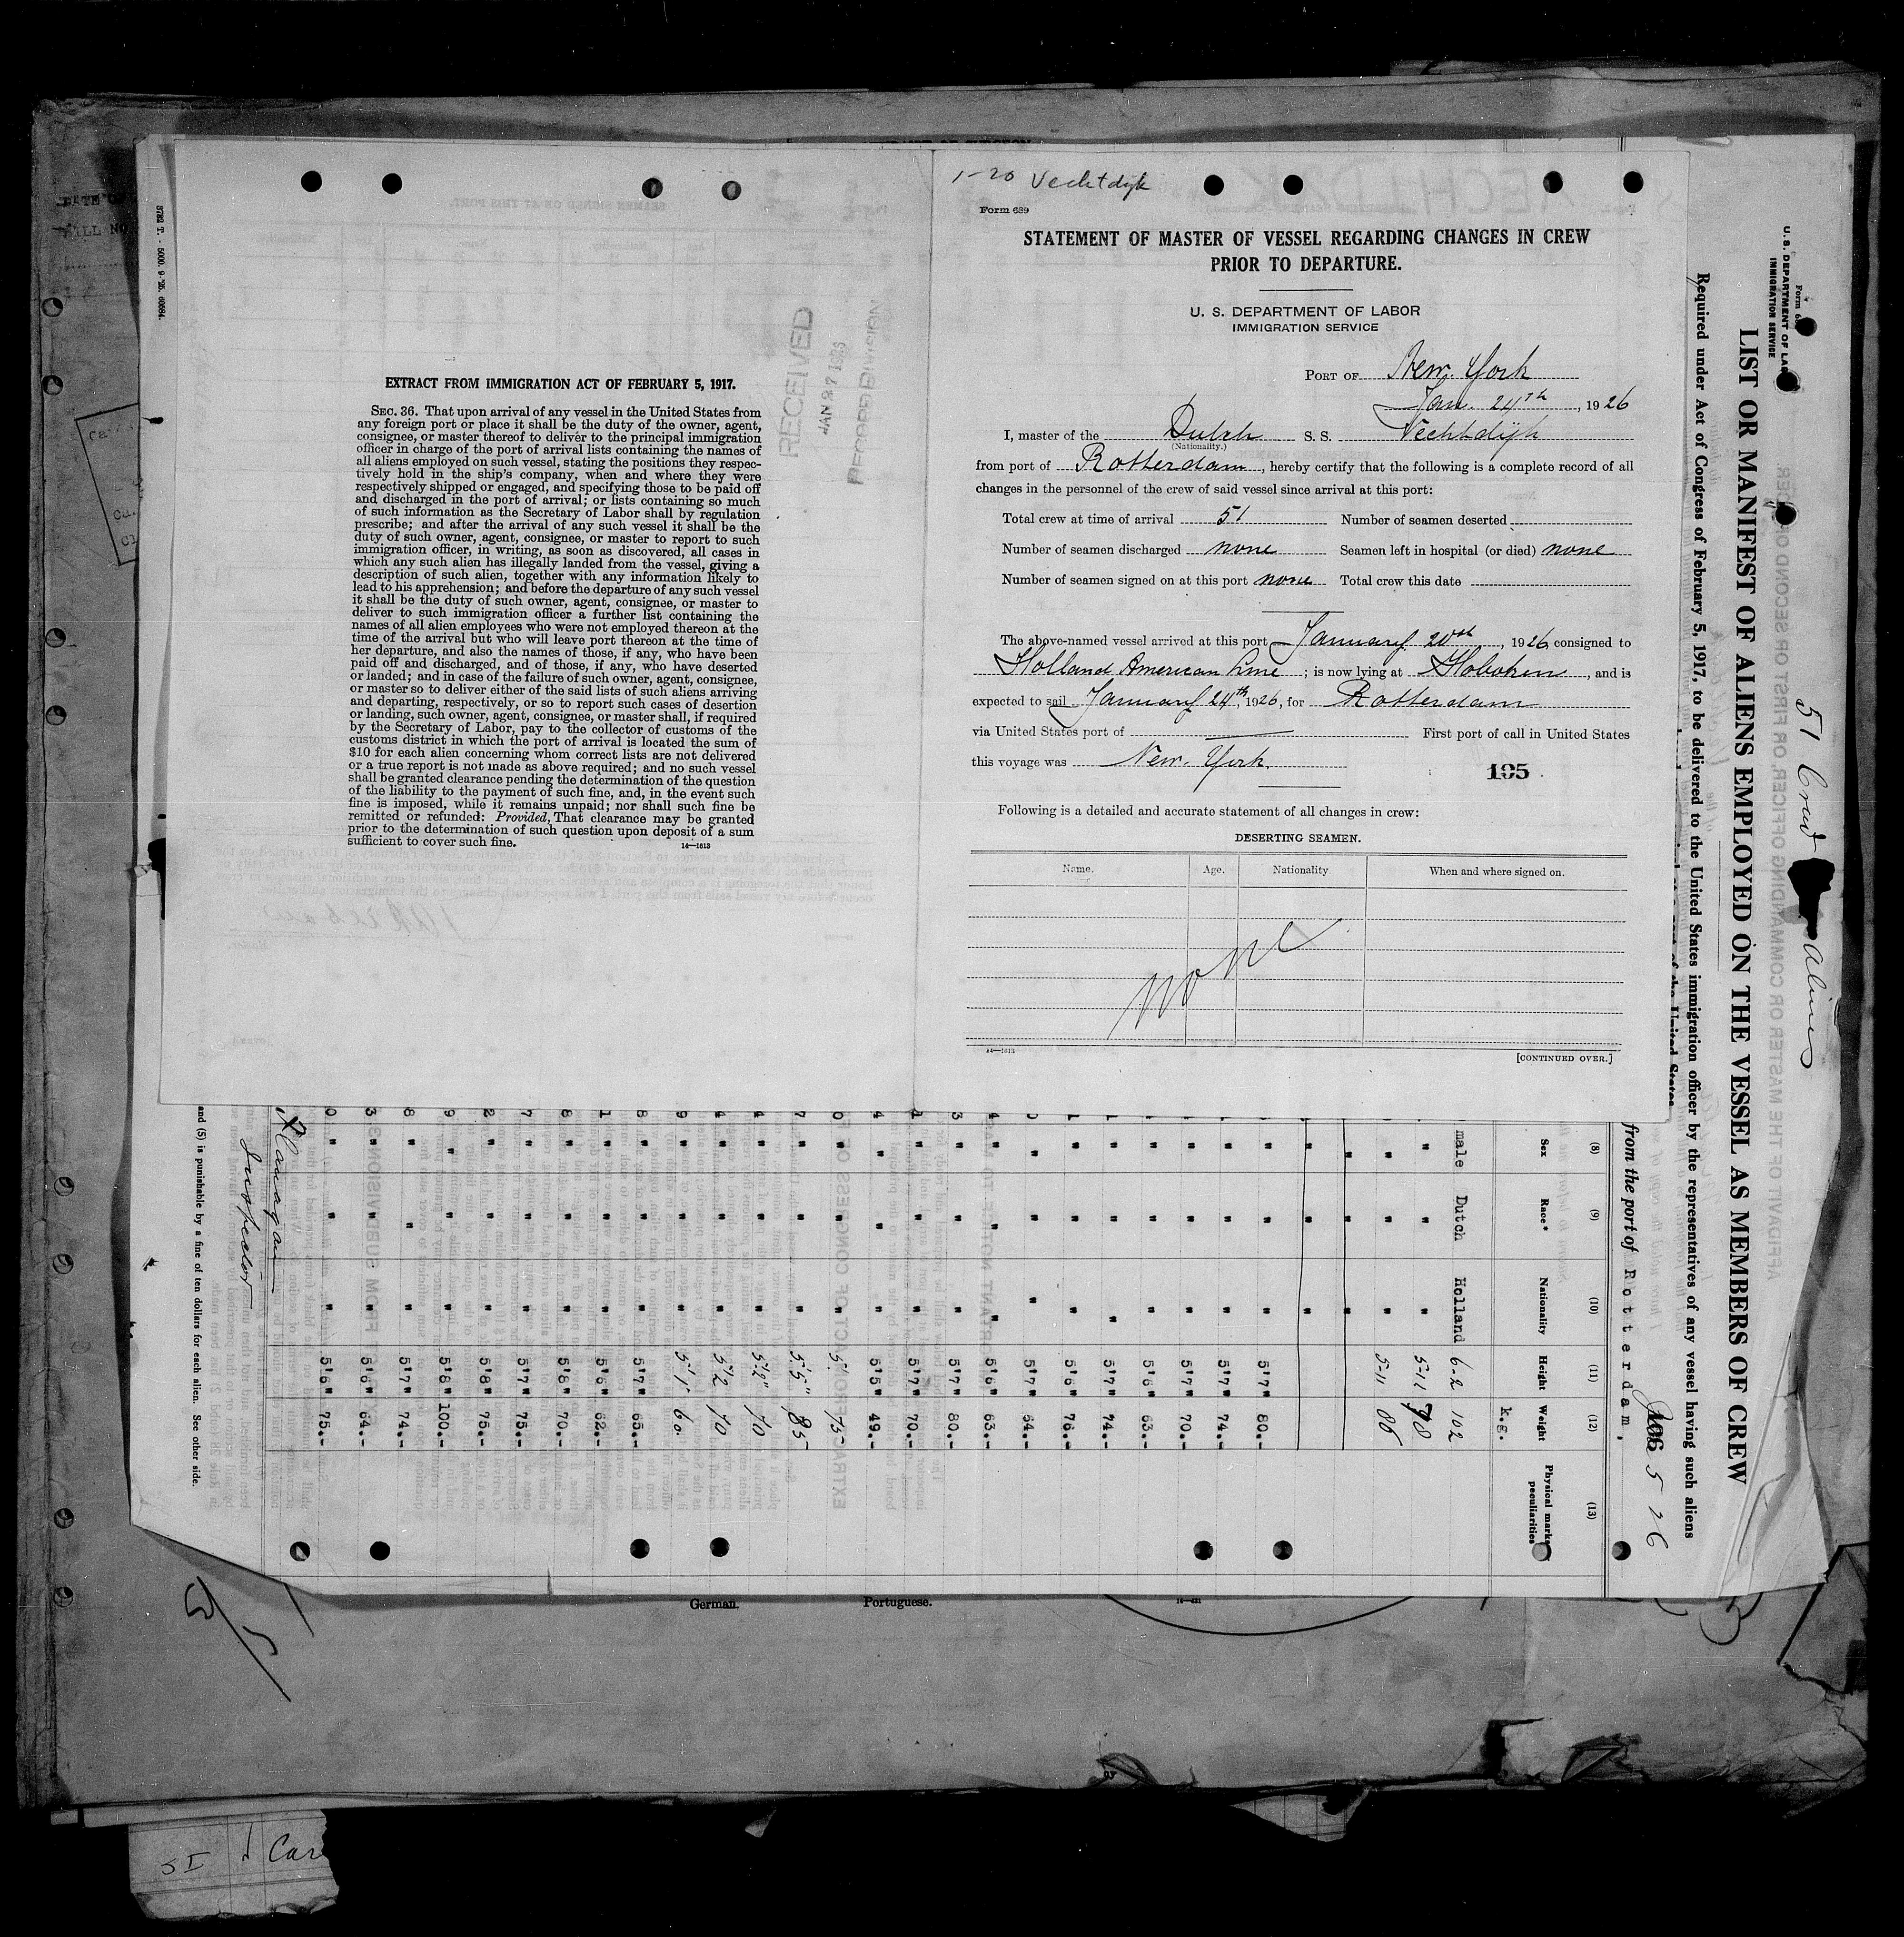 1-20 Vechtdyk
Form 689
STATEMENT OF MASTER OF VESSEL REGARDING CHANGES IN CREW
PRIOR TO DEPARTURE.
U. S. DEPARTMENT OF LABOR
IMMIGRATION SERVICE
PORT OF New York
Jan. 24th, 1926
I, master of the Dutch S. S. Vechtdijk
(Nationality.)
from port of Rotterdam, hereby certify that the following is a complete record of all
changes in the personnel of the crew of said vessel since arrival at this port:
Total crew at time of arrival 51 Number of seamen deserted
Number of seamen discharged none Seamen left in hospital (or died) none
Number of seamen signed on at this port none Total crew this date
The above-named vessel arrived at this port January 20th, 1926, consigned to
Holland American Line; is now lying at Hoboken, and is
expected to sail January 24th, 1926, for Rotterdam
via United States port of First port of call in United States
this voyage was New York.
195
Following is a detailed and accurate statement of all changes in crew:
DESERTING SEAMEN.
Name. Age. Nationality When and where signed on.
none
14—1613
[CONTINUED OVER.]
EXTRACT FROM IMMIGRATION ACT OF FEBRUARY 5, 1917.
SEC. 36. That upon arrival of any vessel in the United States from
any foreign port or place it shall be the duty of the owner, agent,
consignee, or master thereof to deliver to the principal immigration
officer in charge of the port of arrival lists containing the names of
all aliens employed on such vessel, stating the positions they respec-
tively hold in the ship's company, when and where they were
respectively shipped or engaged, and specifying those to be paid off
and discharged in the port of arrival; or lists containing so much
of such information as the Secretary of Labor shall by regulation
prescribe; and after the arrival of any such vessel it shall be the
duty of such owner, agent, consignee, or master to report to such
immigration officer, in writing, as soon as discovered, all cases in
which any such alien has illegally landed from the vessel, giving a
description of such alien, together with any information likely to
lead to his apprehension; and before the departure of any such vessel
it shall be the duty of such owner, agent, consignee, or master to
deliver to such immigration officer a further list containing the
names of all alien employees who were not employed thereon at the
time of the arrival but who will leave port thereon at the time of
her departure, and also the names of those, if any, who have been
paid off and discharged, and of those, if any, who have deserted
or landed; and in case of the failure of such owner, agent, consignee,
or master so to deliver either of the said lists of such aliens arriving
and departing, respectively, or so to report such cases of desertion
or landing, such owner, agent, consignee, or master shall, if required
by the Secretary of Labor, pay to the collector of customs of the
customs district in which the port of arrival is located the sum of
$10 for each alien concerning whom correct lists are not delivered
or a true report is not made as above required; and no such vessel
shall be granted clearance pending the determination of the question
of the liability to the payment of such fine, and, in the event such
fine is imposed, while it remains unpaid; nor shall such fine be
remitted or refunded: Provided, That clearance may be granted
prior to the determination of such question upon deposit of a sum
sufficient to cover such fine.
14—1613
RECEIVED
JAN 27 1926
RECORD DIVISION
U. S. DEPARTMENT OF LABOR
IMMIGRATION SERVICE
LIST OR MANIFEST OF ALIENS EMPLOYED ON THE VESSEL AS MEMBERS OF CREW
Required under Act of Congress of February 5, 1917, to be delivered to the United States immigration officer by the representatives of any vessel having such aliens
51 Crew
Aliens
from the port of Rotterdam,
(8) (9) (10) (11) (12) (13)
Sex Race* Nationality Height Weight Physical marks peculiarities
k.g.
male Dutch Holland 6-2 102
" " " 5-11 78
" " " 5-11 86
" " "
" " "
" " " 5'7" 80.-
" " " 5'7" 74.-
" " " 5'7" 70.-
" " " 5'6" 63.-
" " " 5'7" 74.-
" " " 5'6" 76.-
" " " 5'7" 64.-
" " " 5'6" 63.-
" " " 5'7" 80.-
" " " 5'7" 70.-
" " " 5'5" 49.-
" " " 5' 75
" " " 5'5" 85
" " " 5'2" 70
" " " 5'2 70
" " " 5'1" 60
" " " 5'7" 65.-
" " " 5'6" 62.-
" " " 5'8" 70.-
" " " 5'7" 75.-
" " " 5'8" 75.-
" " " 5'8" 100.-
" " " 5'7" 74.-
" " " 5'6" 64.-
" " " 5'6" 75.-
Flanagan
Inspector
and (5) is punishable by a fine of ten dollars for each alien. See other side.
German.
Portuguese.
SI
Car